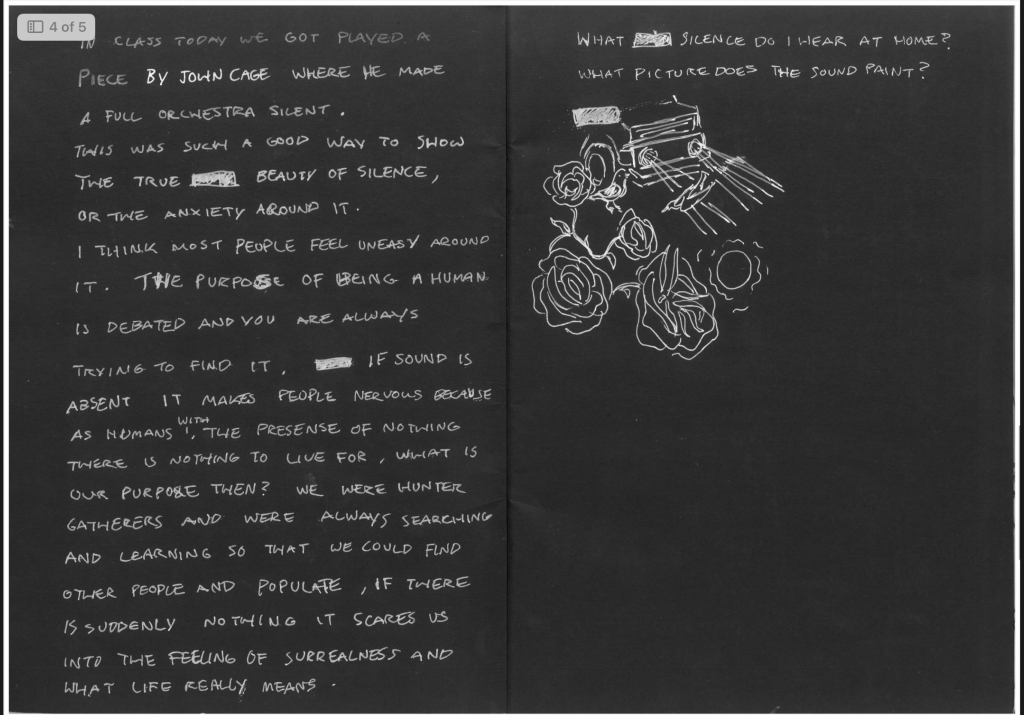 4 of 5
IN CLASS TODAY WE GOT PLAYED A
PIECE BY JOHN CAGE WHERE HE MADE
A FULL ORCHESTRA SILENT.
THIS WAS SUCH A GOOD WAY TO SHOW
THE TRUE BEAUTY OF SILENCE,
OR THE ANXIETY AROUND IT.
I THINK MOST PEOPLE FEEL UNEASY AROUND
IT. THE PURPOSE OF BEING A HUMAN
IS DEBATED AND YOU ARE ALWAYS
TRYING TO FIND IT. IF SOUND IS
ABSENT IT MAKES PEOPLE NERVOUS BECAUSE
AS HUMANS WITH THE PRESENSE OF NOTHING
THERE IS NOTHING TO LIVE FOR, WHAT IS
OUR PURPOSE THEN? WE WERE HUNTER
GATHERERS AND WERE ALWAYS SEARCHING
AND LEARNING SO THAT WE COULD FIND
OTHER PEOPLE AND POPULATE, IF THERE
IS SUDDENLY NOTHING IT SCARES US
INTO THE FEELING OF SURREALNESS AND
WHAT LIFE REALLY MEANS.
WHAT SILENCE DO I HEAR AT HOME?
WHAT PICTURE DOES THE SOUND PAINT?